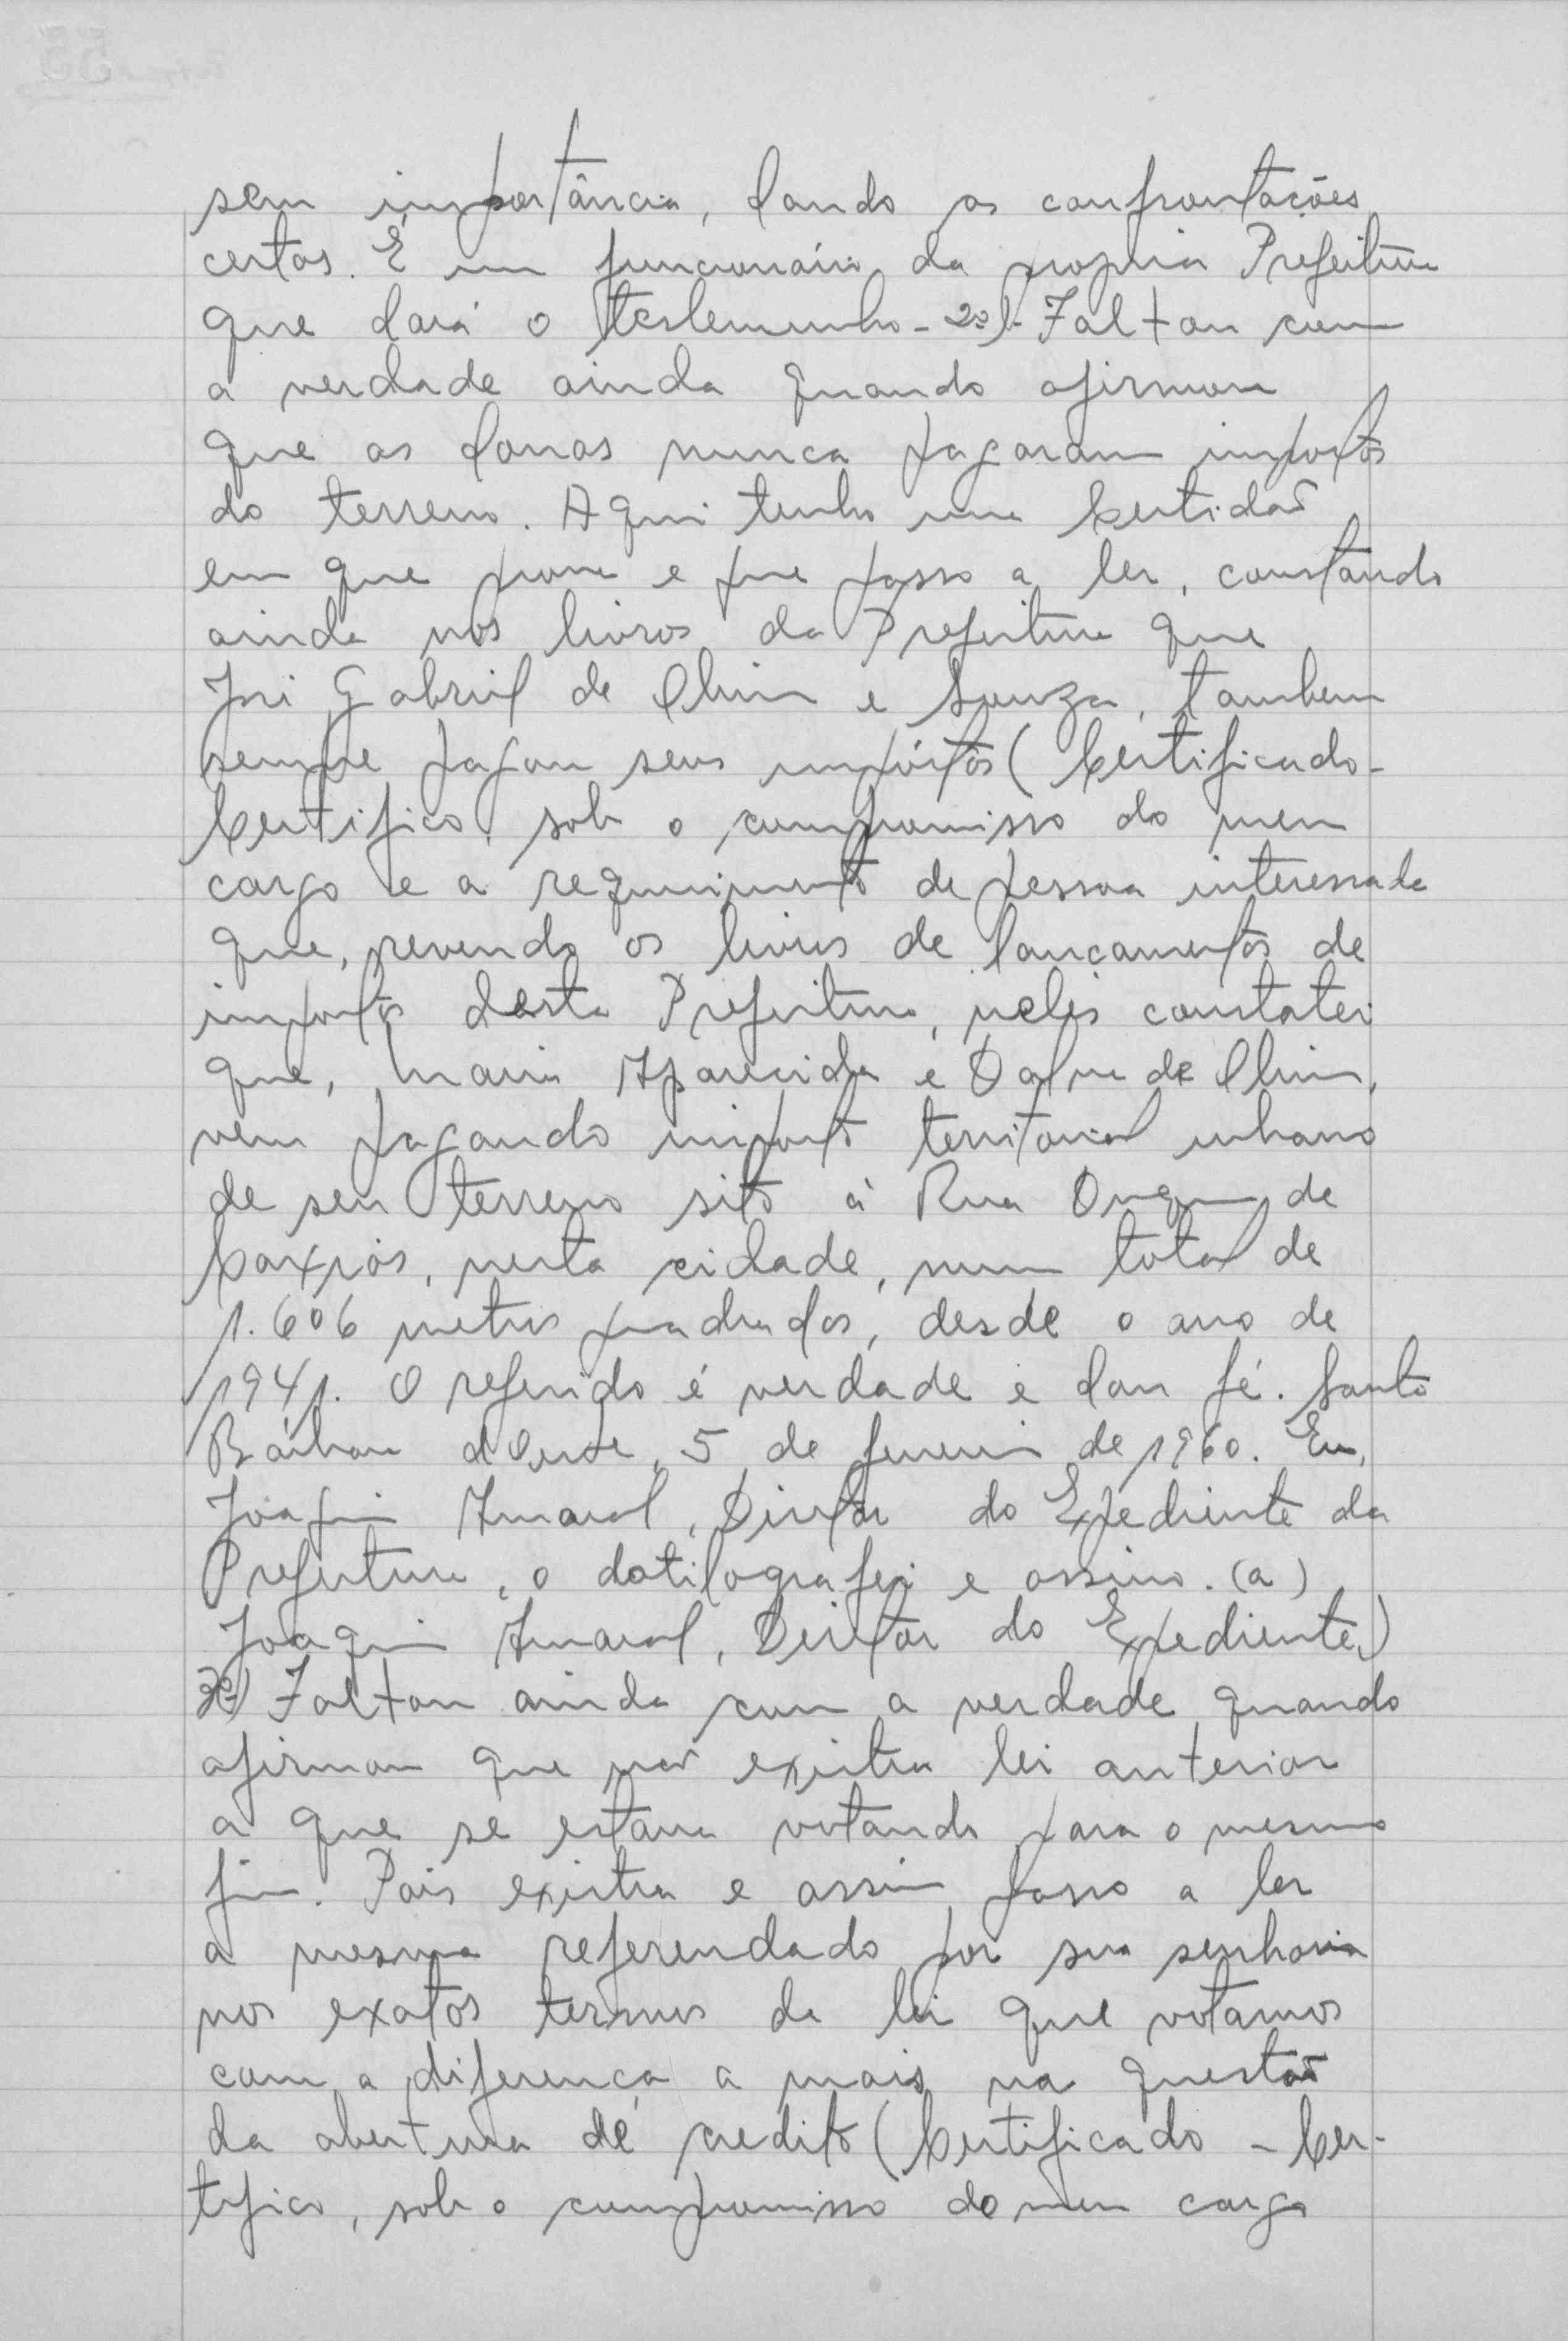 sem importância, dando as confrontações
certas. É um funcionário da propria Prefeitura
que dará o testemunho - 2º)- Faltou com
a verdade ainda quando afirmou
que as donas nunca pagaram impostos
do terreno. Aqui tenho uma Certidão
em que prova e que passo a ler, constando
ainda nos livros da Prefeitura que
José Gabriel de Oliveira e Souza, tambem
sempre pagou seus impóstos (Certificado -
Certifico, sob o compromisso do meu
cargo e a requerimento de pessoa interessada
que, revendo os livros de lançamentos de
impostos desta Prefeitura, neles constatei
que, Maria Aparecida e Dalva de Oliveira,
vem pagando imposto territorial urbano
de seu terreno sito à Rua Duque de
Caxias, nesta cidade, num total de
1.606 metros quadrados, desde o ano de
1941. O referido é verdade e dou fé. Santa
Bárbara d'Oeste, 5 de fevereiro de 1960. Eu,
Joaquim Amaral, Diretor do Expediente da
Prefeitura, o datilografei e assino. (a)
Joaquim Amaral, Diretor do Expediente)
3º) Faltou ainda com a verdade quando
afirmou que não existia lei anterior
a que se estava votando para o mesmo
fim. Pois existia e assim passo a ler
a mesma referendado por sua senhoria
nos exatos termos da lei que votamos
com a diferença a mais na questão
da abertura de credito (Certificado - Cer-
tifico, sob o compromisso do meu cargo